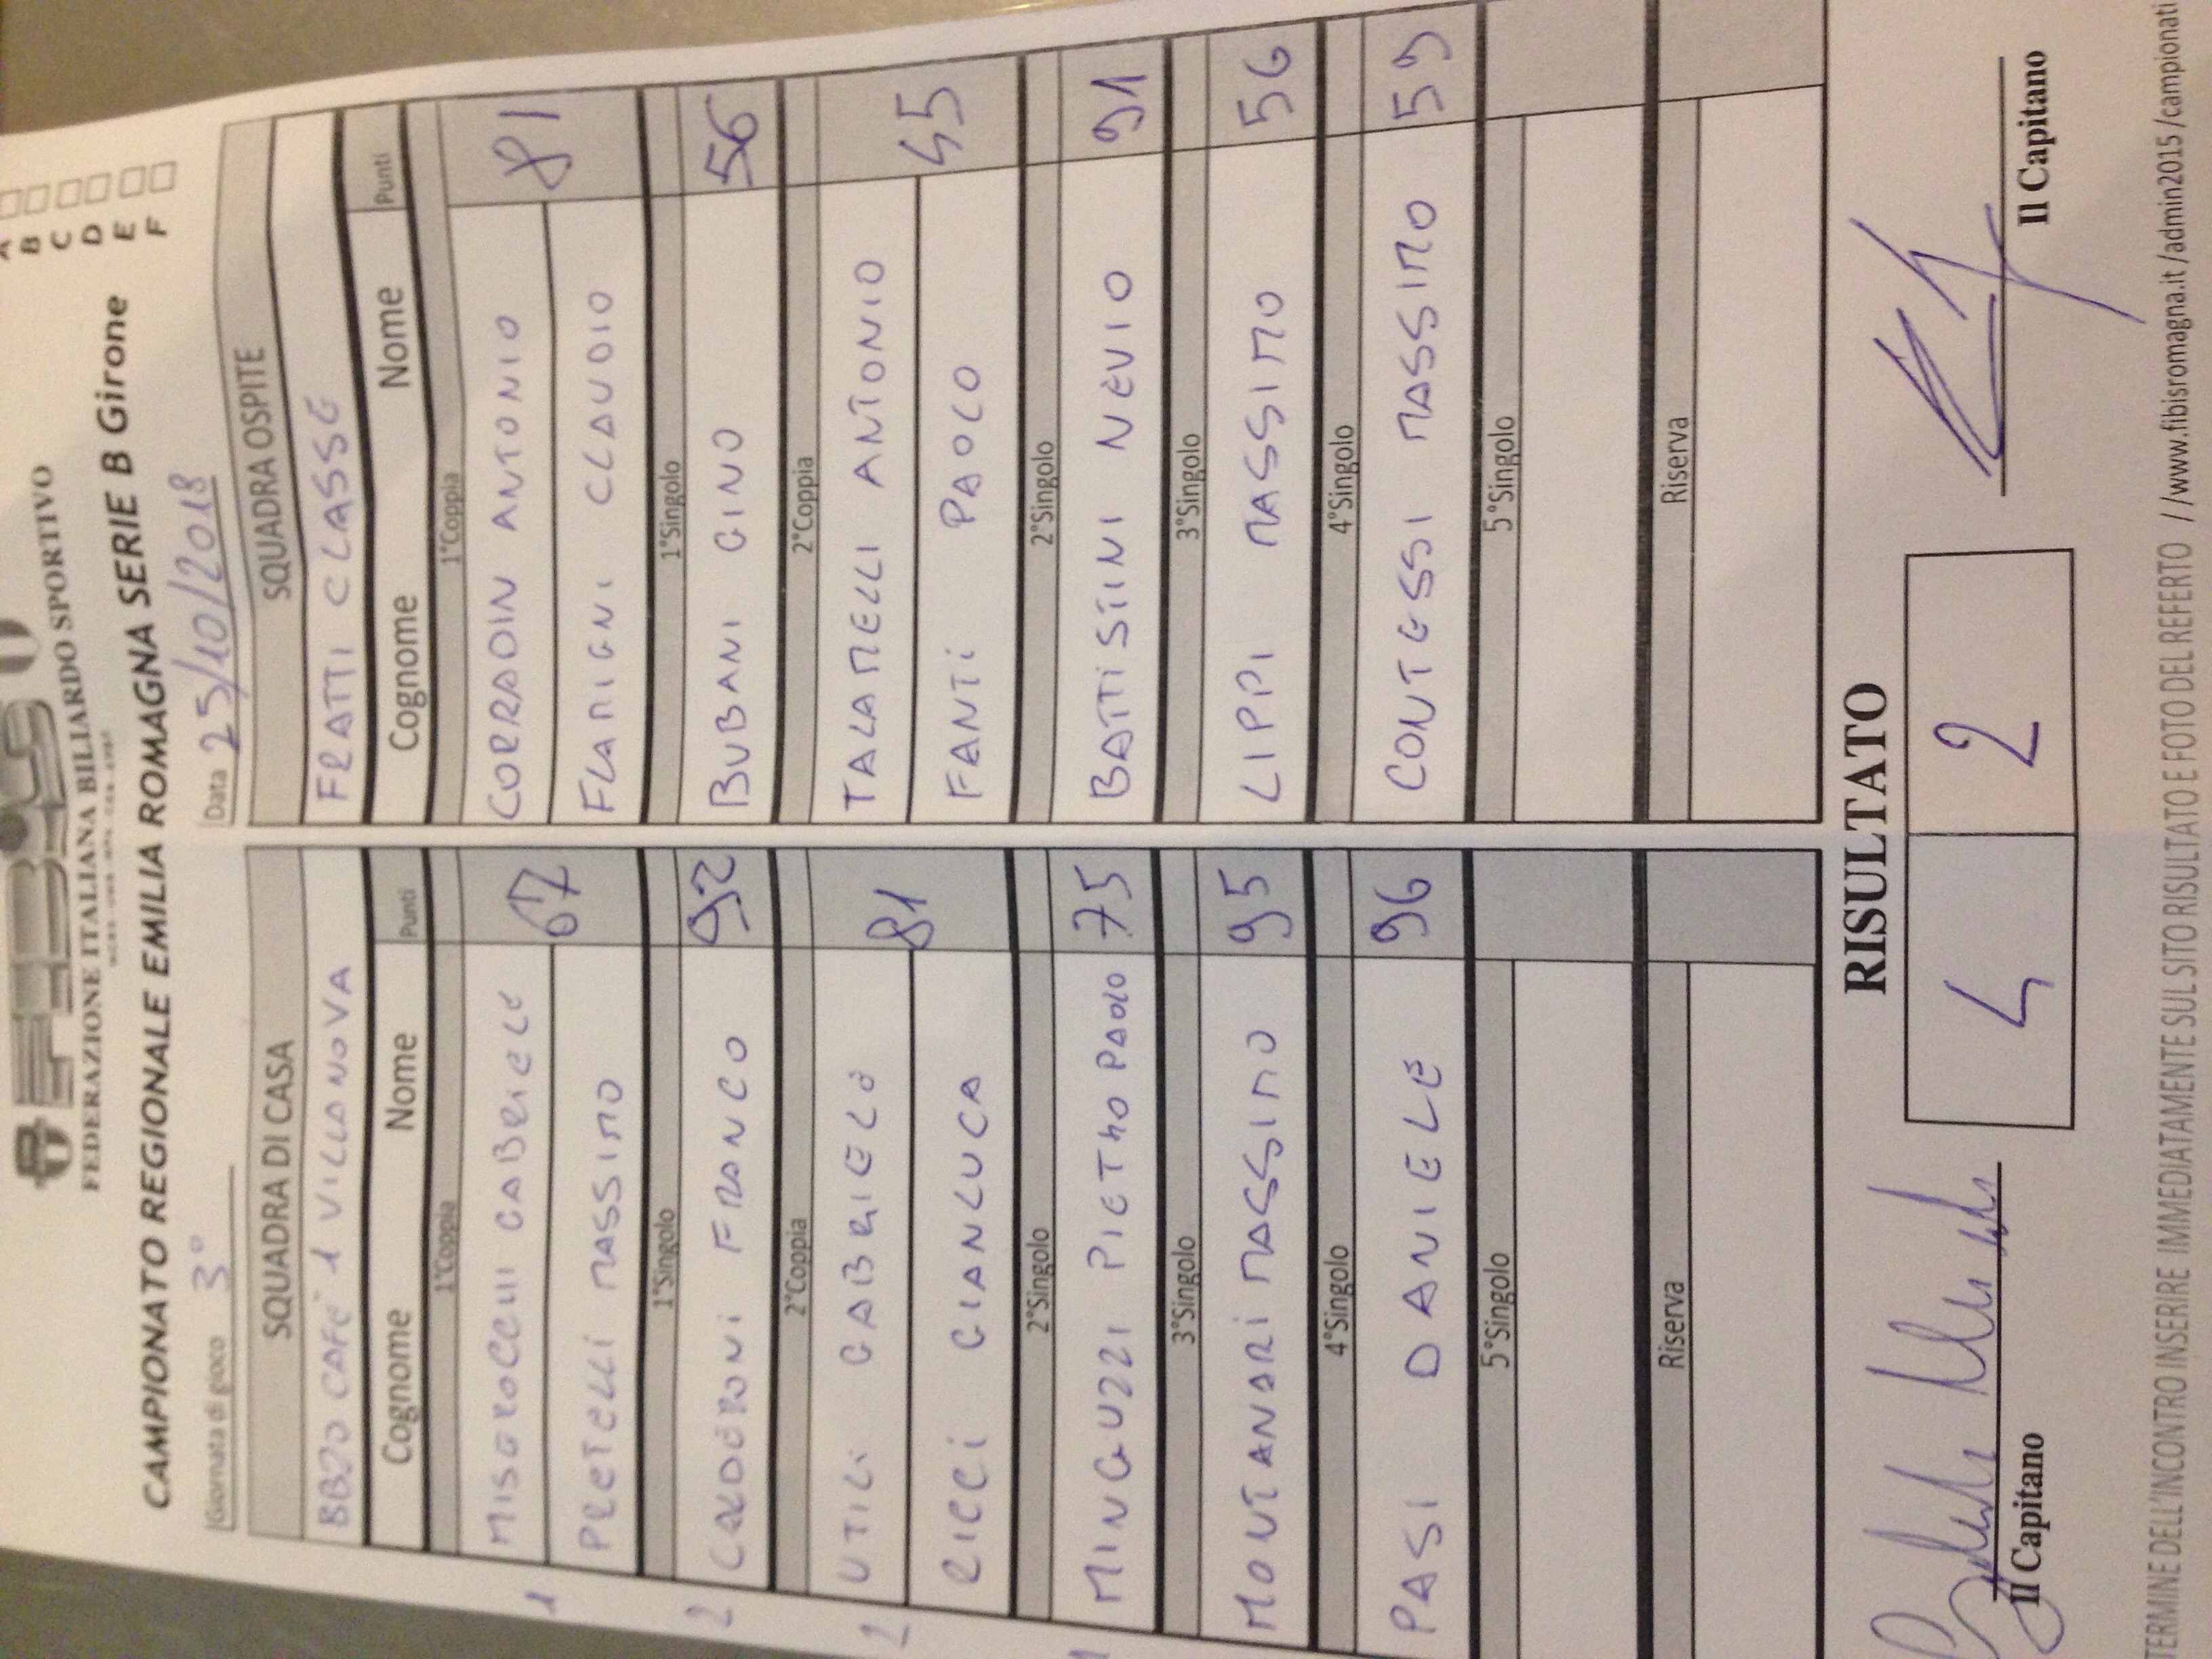 FIBiS
FEDERAZIONE ITALIANA BILIARDO SPORTIVO
CAMPIONATO REGIONALE EMILIA ROMAGNA SERIE B Girone
A
B
C
D
E
F
Giornata di gioco 3°
Data 25/10/2018
SQUADRA DI CASA
BBZO CAFE' 1 VILLANOVA
Cognome Nome Punti
1°Coppia
1
MISEROCCHI GABRIELE
67
PRETELLI MASSIMO
1°Singolo
2
CALDERONI FRANCO 92
2°Coppia
2
UTILI GABRIELE
81
RICCI GIANLUCA
2°Singolo
1
MINGUZZI PIETRO PAOLO 75
3°Singolo
MONTANARI MASSIMO 95
4°Singolo
PASI DANIELE 96
5°Singolo
Riserva
SQUADRA OSPITE
FRATTI CLASSE
Cognome Nome Punti
1°Coppia
CORRADIN ANTONIO
81
FLAMIGNI CLAUDIO
1°Singolo
BUBANI GINO 56
2°Coppia
TALAMELLI ANTONIO
45
FANTI PAOLO
2°Singolo
BATTISTINI NEVIO 91
3°Singolo
LIPPI MASSIMO 56
4°Singolo
CONTESSI MASSIMO 59
5°Singolo
Riserva
RISULTATO
4 2
Il Capitano
Il Capitano
TERMINE DELL'INCONTRO INSERIRE IMMEDIATAMENTE SUL SITO RISULTATO E FOTO DEL REFERTO //www.fibisromagna.it /admin2015 /campionati